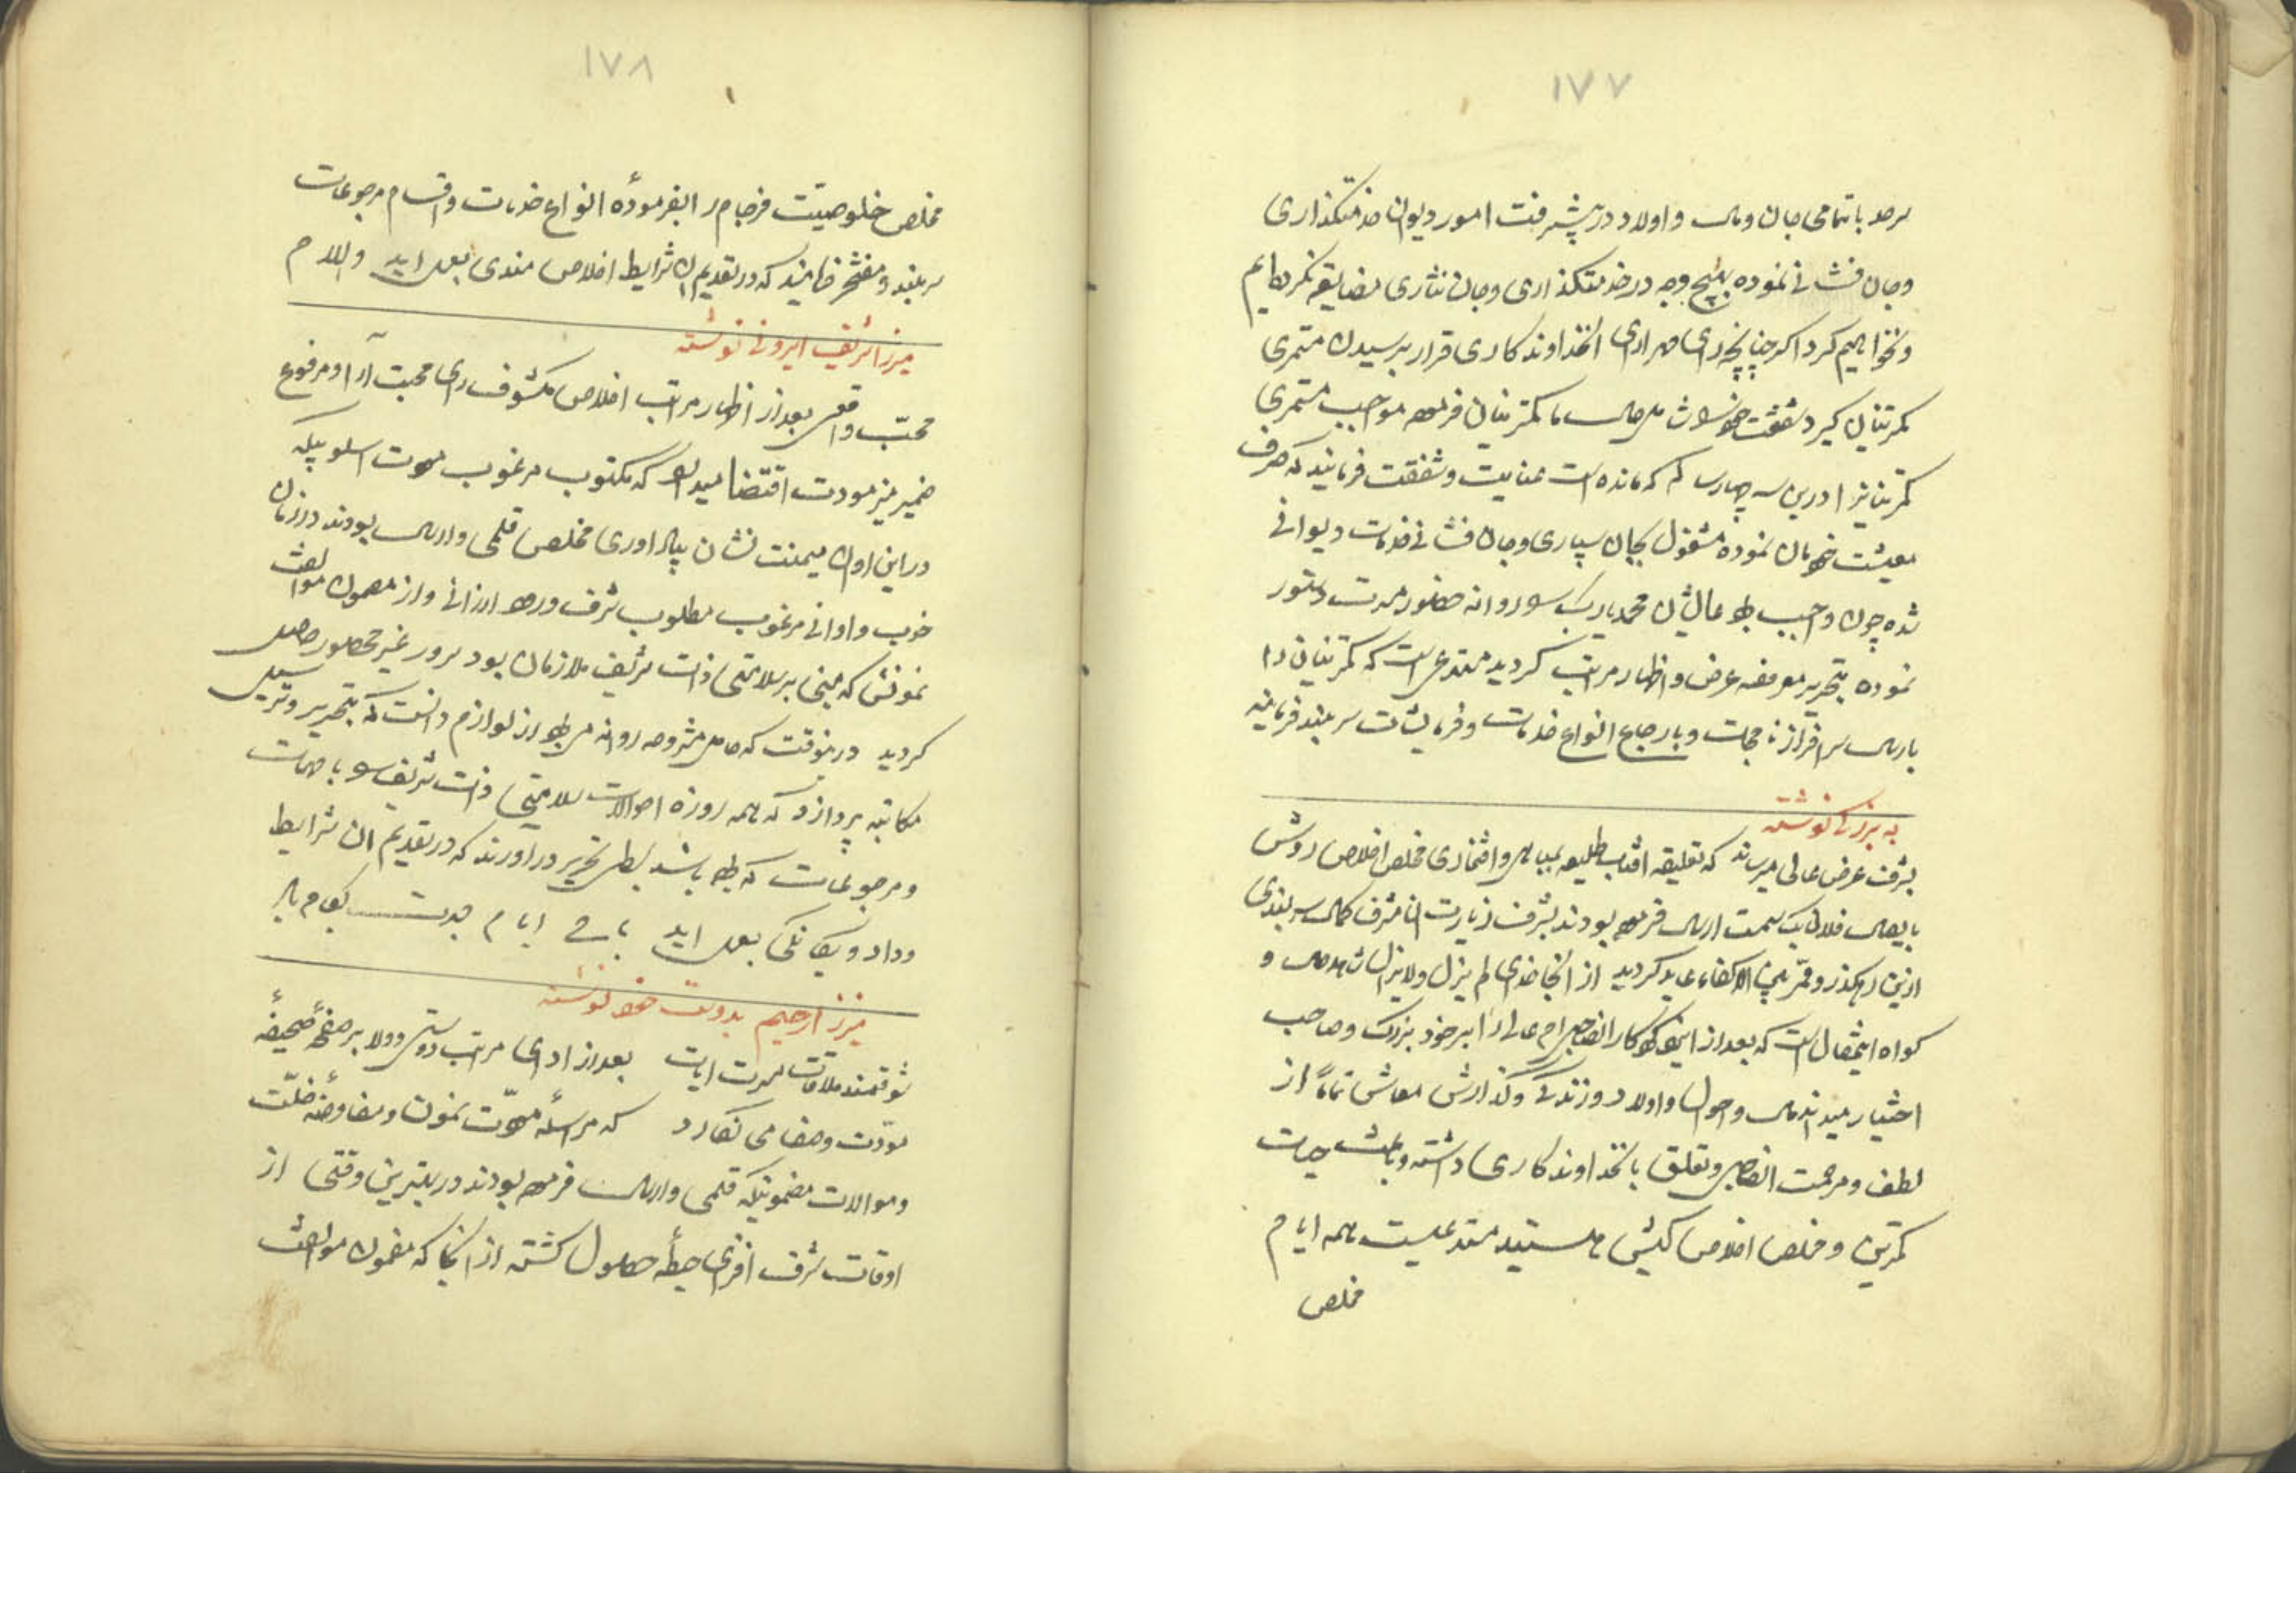 ١٧٧
سرحد باتمامی جان ومال واولاد در پیشرفت امور دیوان خدمتکذاری
وجان فشانی نموده بهیچ وجه در خدمتکذاری وجان نثاری مضایقه نکرده ایم
ونخواهیم کرد اکر چنانچه رای انخداوندکاری قرار برسیدن مستمری
کمترینان کیرد شفقت فرموده مواجب مستمری
کمترینانرا درین سه چهار سال که مانده است عنایت وشفقت فرمایند که صرف
معیشت خودمان نموده مشغول بجان سپاری وجان فشانی خدمات دیوانی
شده چون واجب بود عالیشان محمد بیک روانه حضور دستور
نموده بتحریر عرض واظهار مراتب کردید مستدعی است که کمترینان را
بارسال سرافراز نامجات وبارجاع انواع خدمات وفرمایشات سربلند فرمایند
به بزرکی نوشته
بشرف عرض عالی میرساند که تعلیقه افتاب طلیعه واقتخاری مخلص اخلاص روش
فلان بیک سمت ارسال فرموده بودند بشرف زیارت ان مشرف کمال سربلندی
ازین رهکذر عاید کردید از انجا خدای لم یزل ولایزال شاهد حال و
کواه اینمقال است که بعد از را بر خود بزرک وصاحب
اختیار میداند مال واحوال واولاد وزندکی وکذارش معاش تماماً از
لطف ومرحمت وتعلق بانخداوندکاری داشته وباعث حیات
کمترین ومخلص اخلاص کیش هستید مستدعیست همه ایام
مخلص
١٧٨
مخلص خلوصیّت فرجام را بفرمودهٔ انواع خدمات واقسام مرجوعات
سربلند ومفتخر فرمایند که در تقدیم ان شرایط اخلاص مندی بعمل اید والسلام
میرزا شریف ایروانی نوشته
محبّ واقعی بعد از اظهار مراتب اخلاص مکشوف رای محبت آرا ومرفوع
ضمیر منیر مودت اقتضا میدارد که مکتوب مرغوب مودت اسلوبیکه
در این اوان میمنت نشان بیاد اوری مخلص قلمی وارسال بودند در زمان
خوب واوانی مرغوب مطلوب شرف ورود ارزانی واز مضمون موالفت
نمونش که مبنی بر سلامتی ذات شریف ملازمان بود سرور غیر محصور حاصل
کردید درینوقت که حامل مشروحه روانه می بود از لوازم دانست که بتحریر وترسیل
مکاتبه پردازد که همه روزه احوالات سلامتی ذات شریف را با مهمات
ومرجوعات که بوده باشد بسلک تحریر در اورند که در تقدیم ان شرایط
وداد ویکانکی بعمل اید باقی ایام عزت بکام باد
میرزا رحیم بدوست خود نوشته
شوقمند ملاقات مسرت ایات بعد از ادای مراتب دوستی وولا بر صفحهٔ صحیفهٔ
مودّت وصفا می نکارد که مراسلهٔ مودّت نمون ومفاوضهٔ خلّت
وموالات مضمونیکه قلمی وارسال فرموده بودند در بهترین وقتی از
اوقات شرف افزای حیطهٔ حصول کشته از انجا که مضمون موالفت